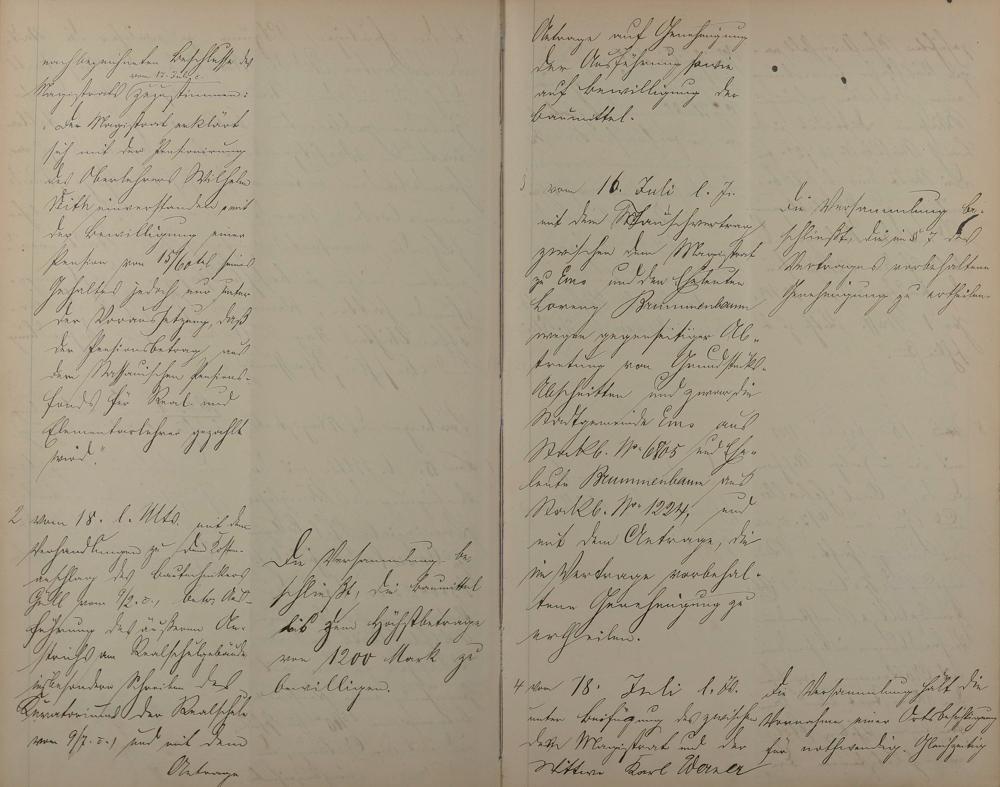 nachbezeichneten Beschlusse des
vom 17. Juli c.
Magistrats zuzustimmen:
"Der Magistrat erklärt
sich mit der Pensionirung
des Oberlehrers Wilhelm
einverstanden mit
der Bewilligung einer
Pension von 15/60tel seines
Gehaltes jedoch nur unter
der Voraussetzung, daß
der Pensionsbetrag aus
dem Nassauischen Pensions-
fonds für Real- und
Elementarlehrer gezahlt
wird."
2 vom 18. l. Mts. mit den
Verhandlungen zu dem Kosten-
anschlag des Bautechnikers
vom 9/2. c., betr. Aus-
führung des äußeren An-
strichs am Realschulgebäude
insbesondere Schreiben des
Curatoriums der Realschule
vom 9/7. c., und mit dem
Antrage
Die Versammlung be-
schließt, die Baumittel
bis zum Höchstbetrage
von 1200 Mark zu
bewilligen.
Antrage auf Genehmigung
der Ausführung sowie
auf Bewilligung der
Baumittel.
3 vom 16. Juli l. J.
mit dem Tauschvertrag
zwischen dem Magistrat
zu Ems und den Eheleuten
Lorenz Brummenbaum
wegen gegenseitiger Ab-
tretung von Grundstücks-
Abschnitten und zwar die
Stadtgemeinde Ems aus
Stockb. No. 6805 und Ehe-
leute Brummenbaum aus
Stockb. No. 1224, und
mit dem Antrage, die
im Vertrage vorbehal-
tene Genehmigung zu
ertheilen.
Die Versammlung be-
schließt, die in § 7 des
Vertrages vorbehaltene
Genehmigung zu ertheilen.
4 vom 18. Juli l. Js.
unter Beifügung des zwischen
dem Magistrat und der
Wittwe Karl
Die Versammlung hält die
Vornahme einer Ortsbesichtigung
für nothwendig. Gleichzeitig